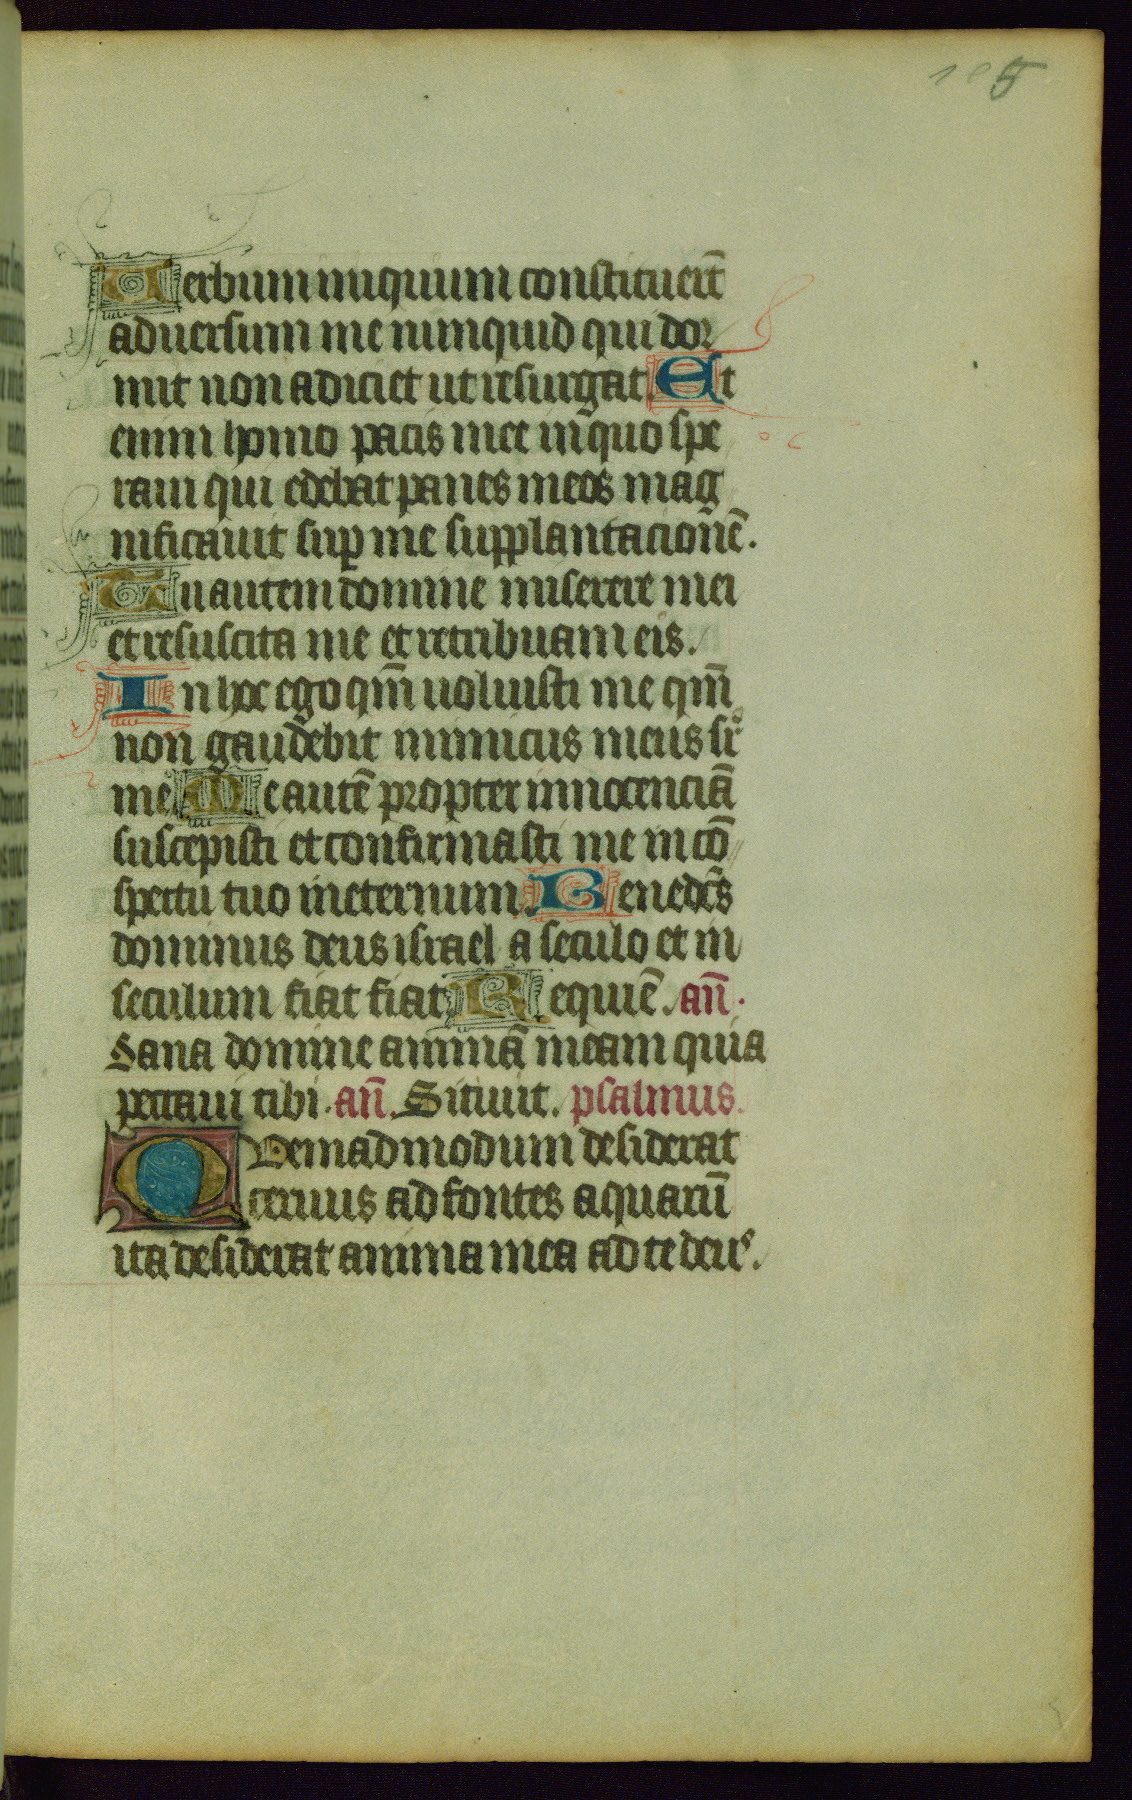 105
Verbum iniquum constituert̄
aduersum me numquid qui dor
mit non adiciet ut resurgat. Et
enim homo pacis mee in quo spe
raui qui edebat panes meos mag
nificauit sup me supplantacionē.
Tu autem domine miserere mei
et resuscita me et retribuam eis.
In hoc ego qm̄ uoluisti me qm̄
non gaudebit inimicus meus sr̄
me Me autē propter innocenciā
suscepisti et confirmasti me in cō
spectu tuo in eternum. Benedc̄s
dominus deus israel a seculo et in
seculum fiat fiat Requiē. an̄.
Sana domine animā meam quia
peccaui tibi. an̄. Sitiuit. psalmus.
Quemadmodum desiderat
ceruus ad fontes aquarū
ita desiderat anima mea ad te deus.